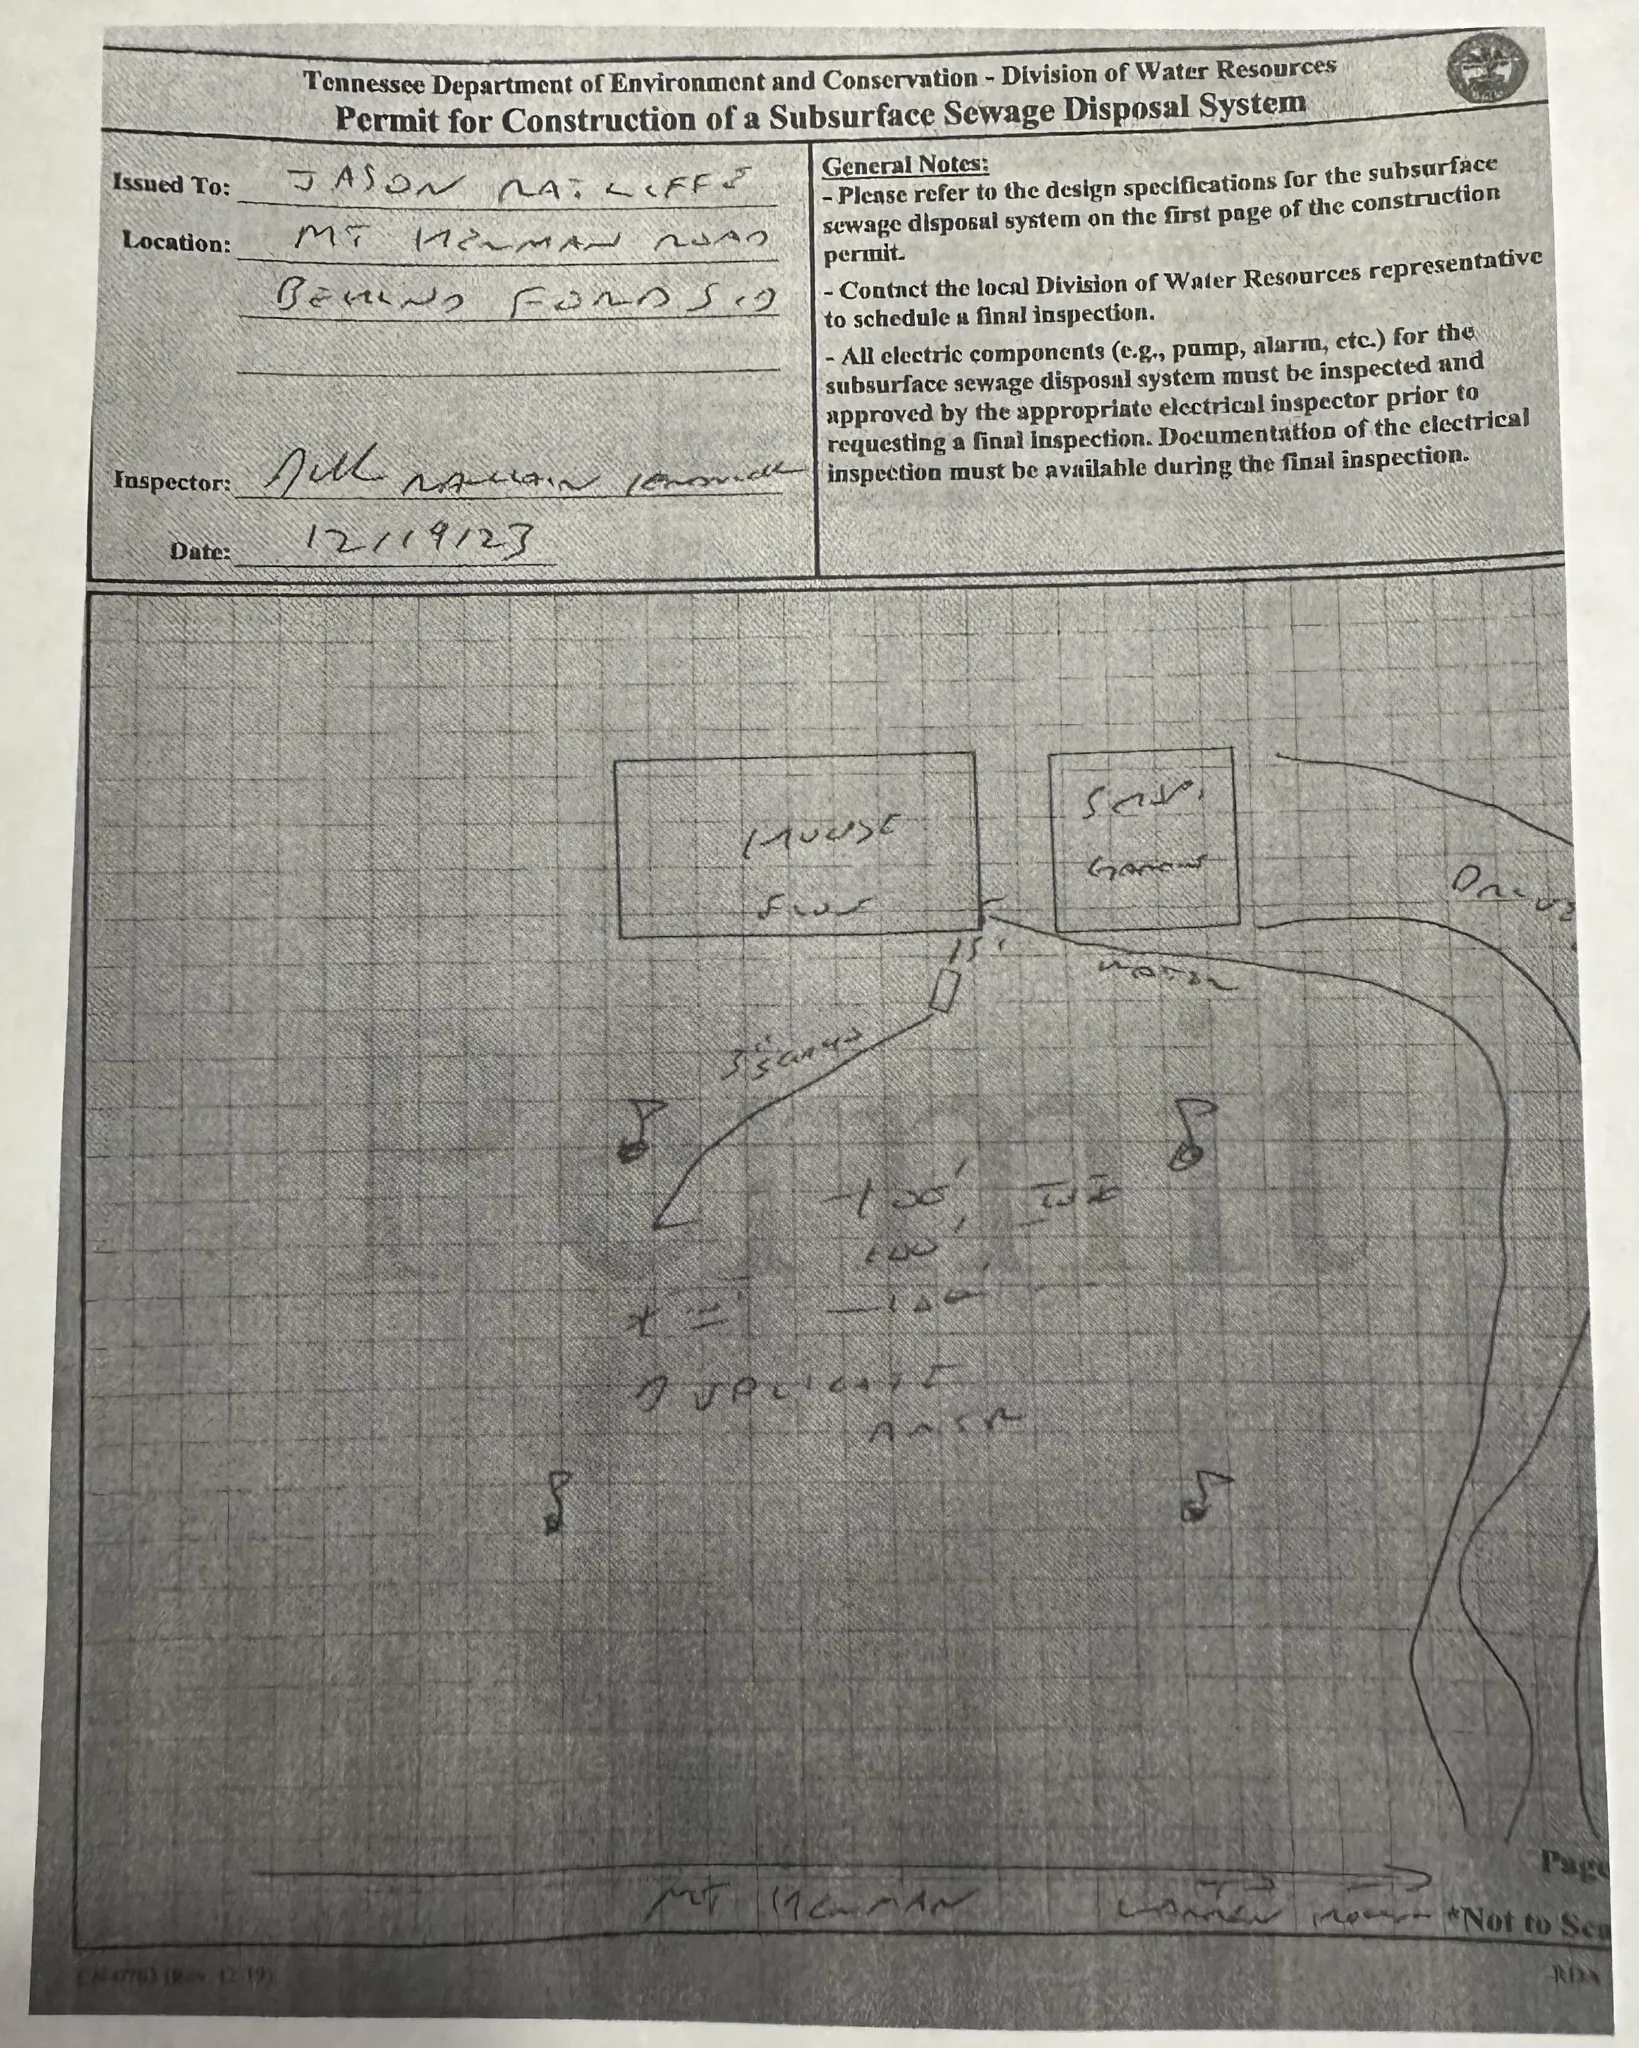 Tennessee Department of Environment and Conservation - Division of Water Resources
Permit for Construction of a Subsurface Sewage Disposal System
Issued To: JASON RATLIFF
Location: MT HERMAN ROAD
BEHIND
Inspector:
Date: 12/19/23
General Notes:
- Please refer to the design specifications for the subsurface
sewage disposal system on the first page of the construction
permit.
- Contact the local Division of Water Resources representative
to schedule a final inspection.
- All electric components (e.g., pump, alarm, etc.) for the
subsurface sewage disposal system must be inspected and
approved by the appropriate electrical inspector prior to
requesting a final inspection. Documentation of the electrical
inspection must be available during the final inspection.
HOUSE
GARAGE
DRIVE
15'
WATER
100'
100'
DUPLICATE
AREA
MT HERMAN
Page
*Not to Sca
RDA